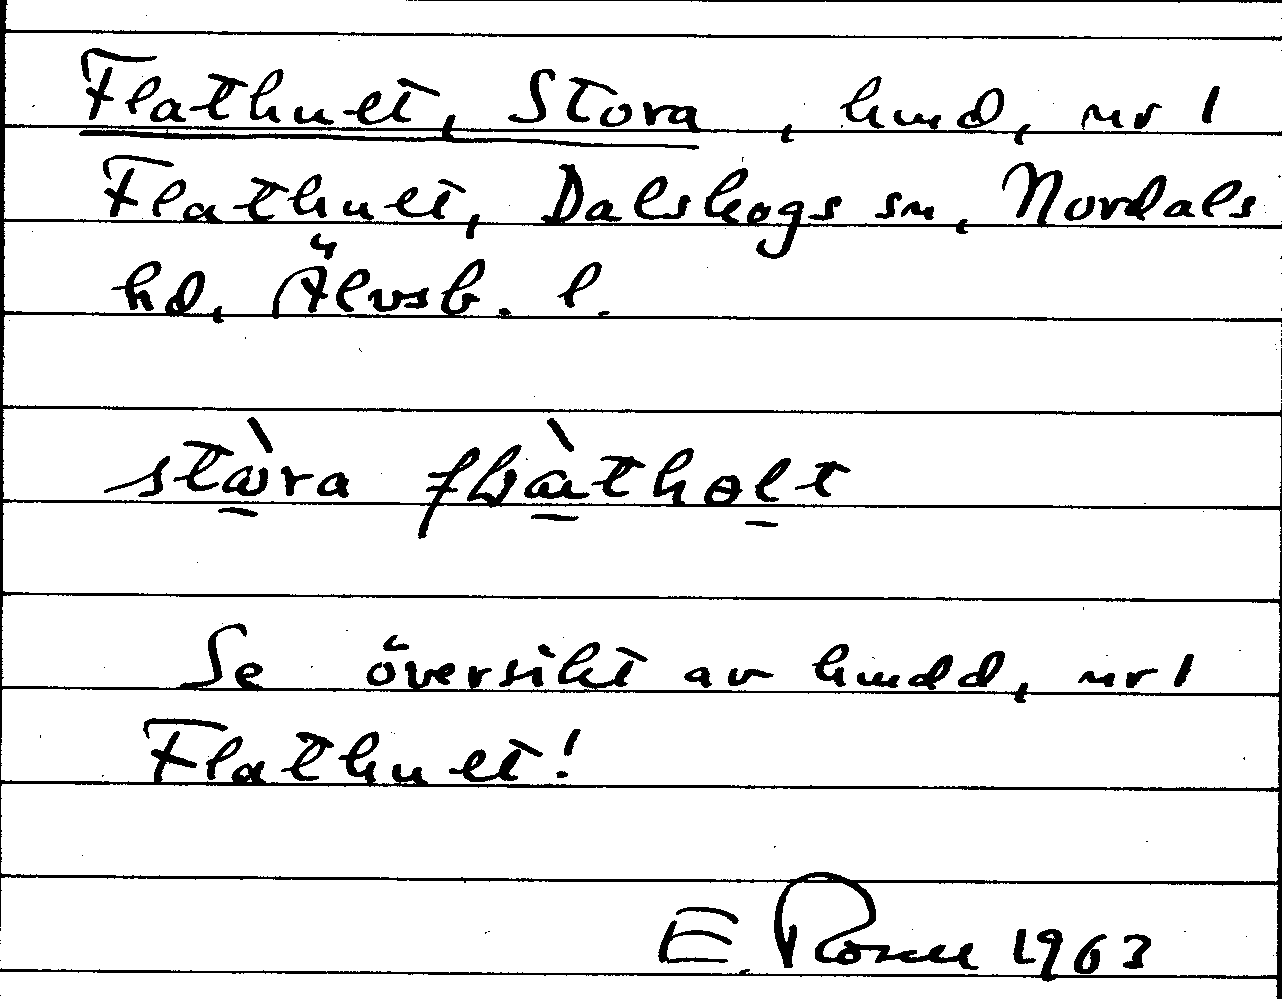 Flathult, Stora, hmd, nr 1
Flathult, Dalskogs sn, Nordals
hd, Älvsb. l.
Se översikt av hmdd, nr 1
Flathult!
E. Rosell 1963